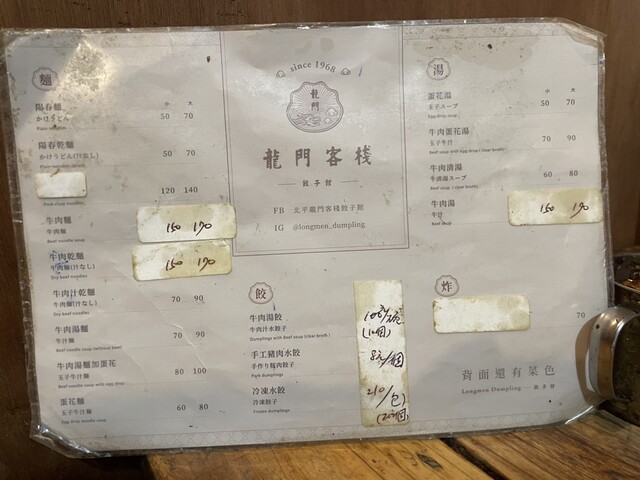 麵
小 大
陽春麵
かけうどん 50 70
Plain noodles
陽春乾麵
かけうどん(汁なし) 50 70
120 140
牛肉麵
牛肉麵 150 190
Beef noodle soup
牛肉乾麵
牛肉麵(汁なし) 150 190
Dry beef noodles
牛肉汁乾麵
牛肉麵(汁なし) 70 90
Dry beef noodles
牛肉湯麵
牛汁麵 70 90
Beef noodle soup (without beef)
牛肉湯麵加蛋花
玉子牛汁麵 80 100
Beef noodle soup with egg drop
蛋花麵
玉子麵 60 80
Egg drop noodle soup
since 1968
龍門
龍門客棧
餃子館
FB 北平龍門客棧餃子館
IG @longmen_dumpling
餃
牛肉湯餃
牛肉汁水餃子
Dumplings with beef soup (clear broth)
(10個)
手工豬肉水餃
手作り豚肉餃子 8元/個
Pork dumplings
冷凍水餃
冷凍餃子 210/包
Frozen dumplings
湯
小 大
蛋花湯
玉子スープ 50 70
Egg drop soup
牛肉蛋花湯
玉子牛汁 70 90
Beef soup with egg drop (clear broth)
牛肉清湯
牛清湯スープ 60 80
Beef soup (clear broth)
牛肉湯
牛汁 150 190
Beef soup
炸
70
背面還有菜色
Longmen Dumpling 餃子館